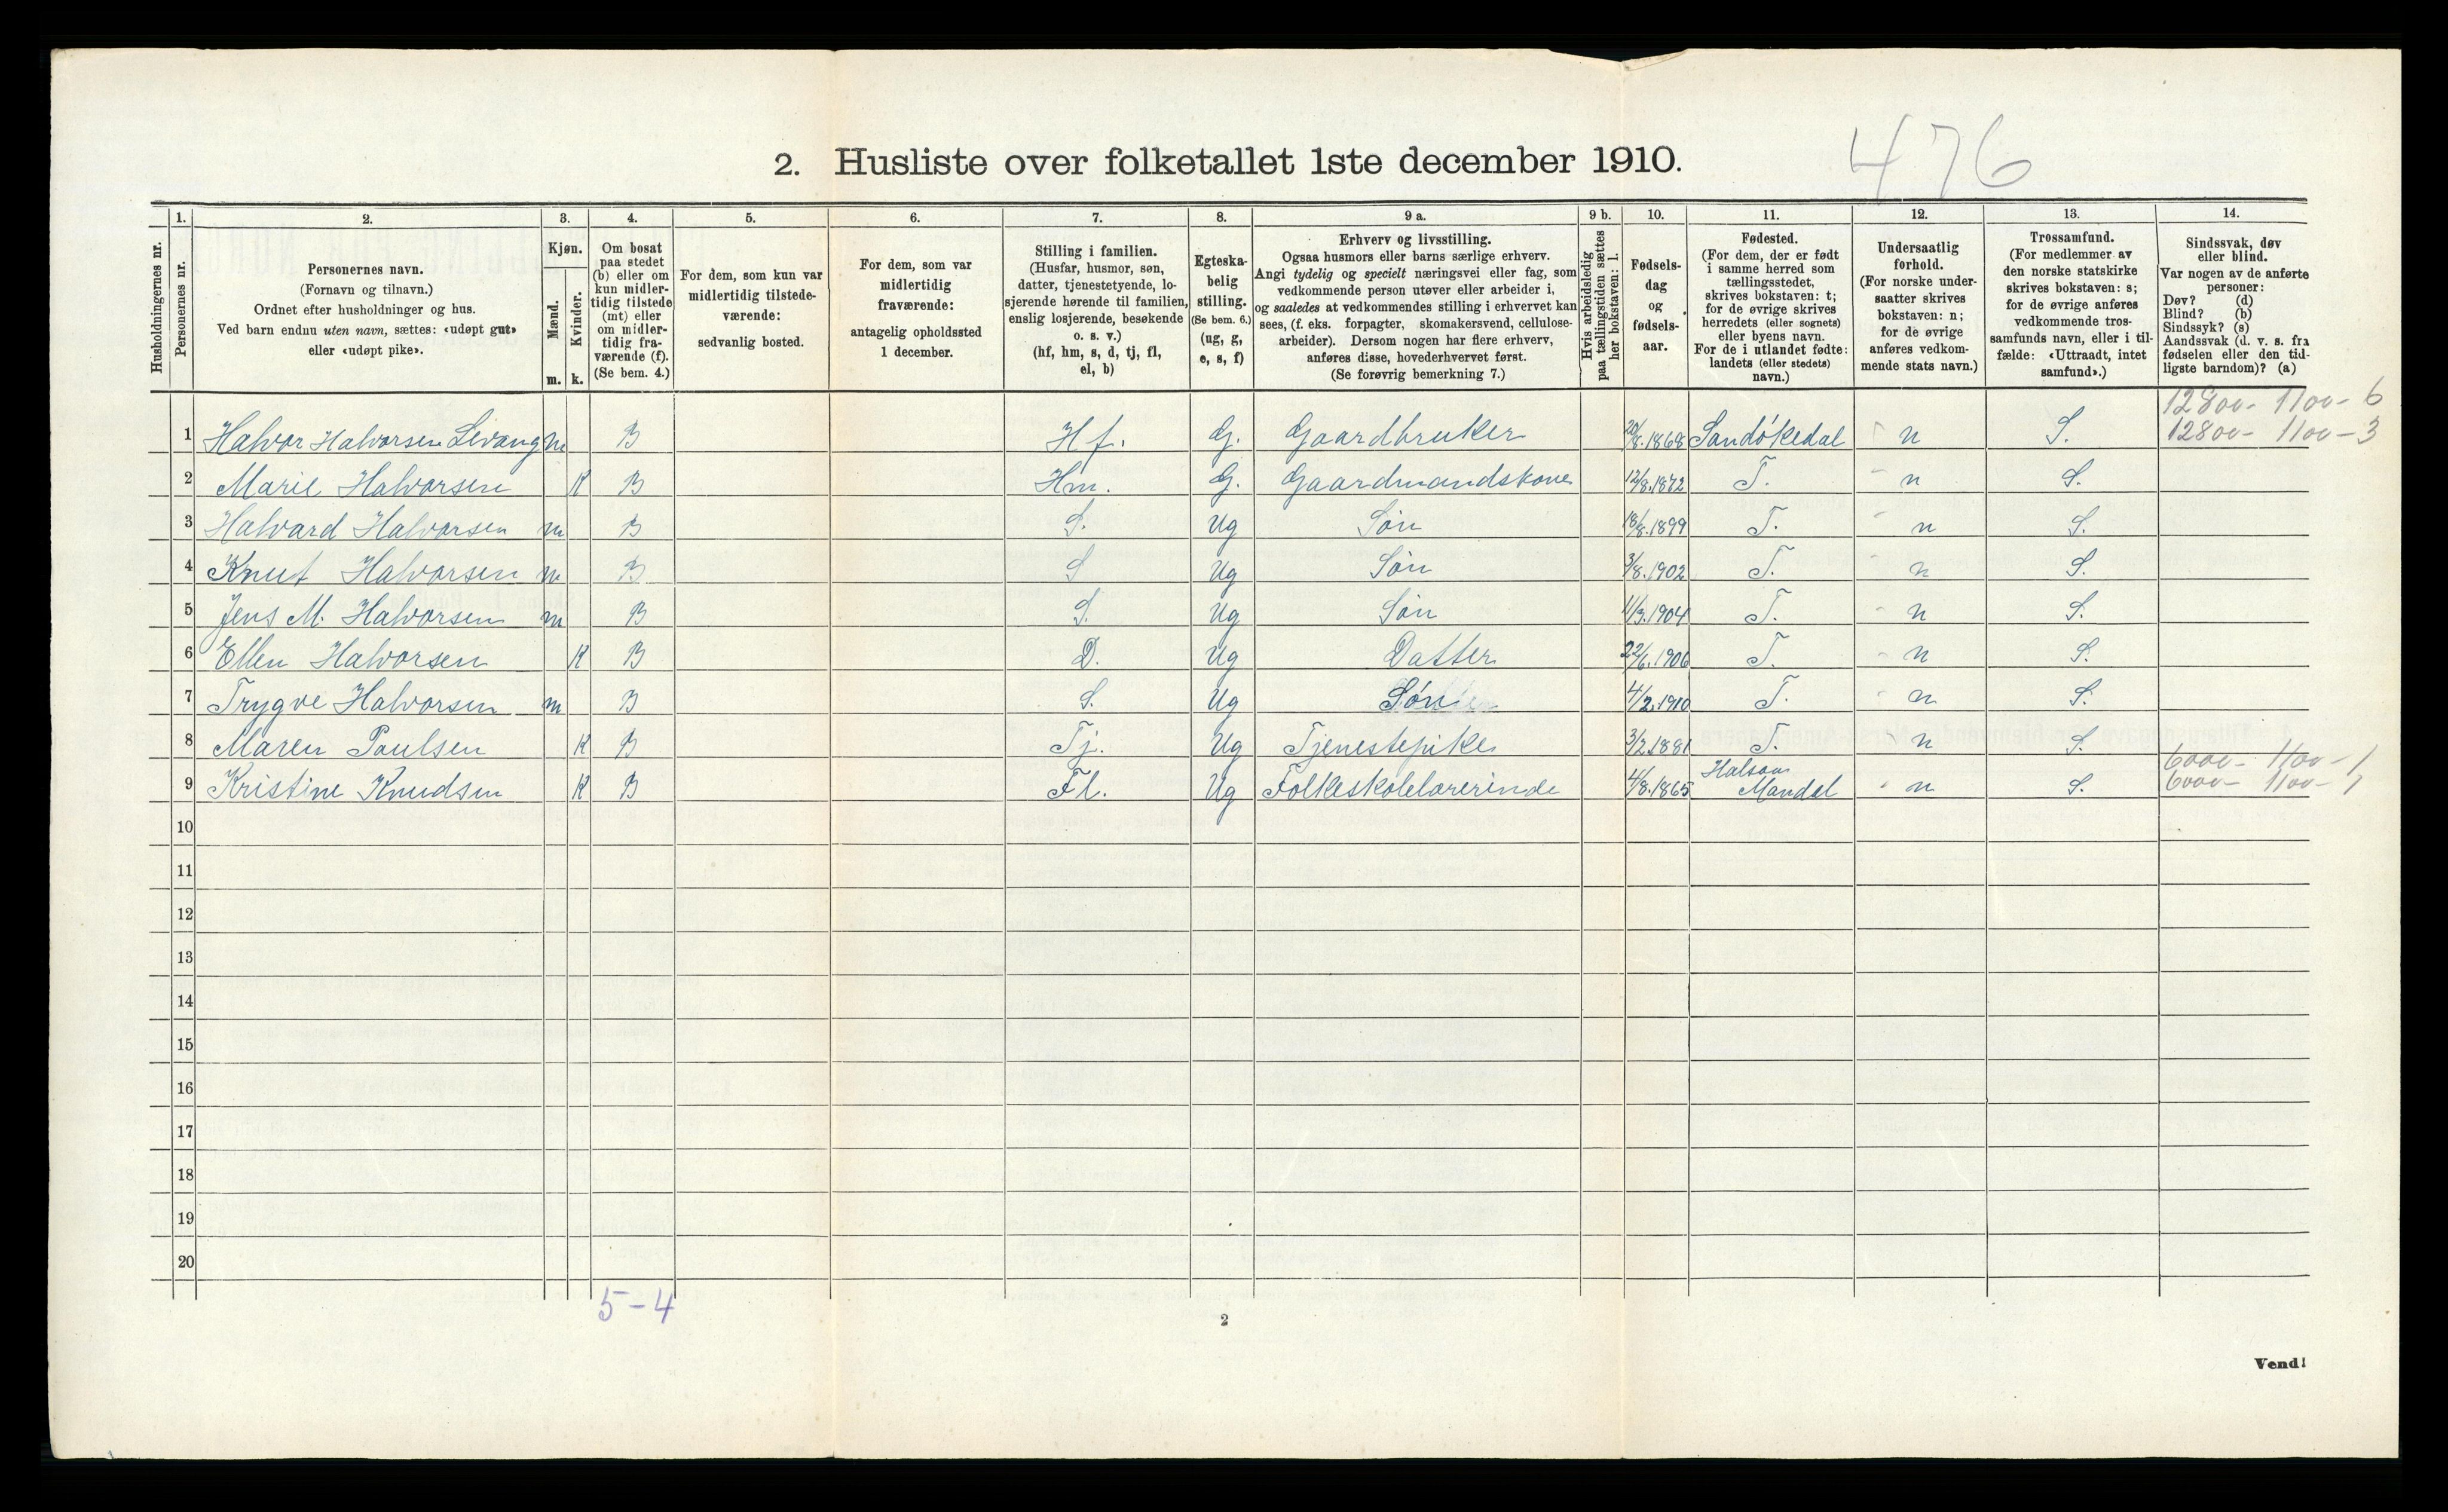 476
2. Husliste over folketallet 1ste december 1910.
Husholdningernes nr.
1.
Personernes nr.
2.
Personernes navn.
(Fornavn og tilnavn.)
Ordnet efter husholdninger og hus.
Ved barn endnu uten navn, sættes: «udøpt gut»
eller «udøpt pike».
3.
Kjøn.
Mænd.
Kvinder.
m. k.
4.
Om bosat
paa stedet
(b) eller om
kun midler-
tidig tilstede
(mt) eller
om midler-
tidig fra-
værende (f).
(Se bem. 4.)
5.
For dem, som kun var
midlertidig tilstede-
værende:
sedvanlig bosted.
6.
For dem, som var
midlertidig
fraværende:
antagelig opholdssted
1 december.
7.
Stilling i familien.
(Husfar, husmor, søn,
datter, tjenestetyende, lo-
sjerende hørende til familien,
enslig losjerende, besøkende
o. s. v.)
(hf, hm, s, d, tj, fl,
el, b)
8.
Egteska-
belig
stilling.
(Se bem. 6.)
(ug, g,
e, s, f)
9 a.
Erhverv og livsstilling.
Ogsaa husmors eller barns særlige erhverv.
Angi tydelig og specielt næringsvei eller fag, som
vedkommende person utøver eller arbeider i,
og saaledes at vedkommendes stilling i erhvervet kan
sees, (f. eks. forpagter, skomakersvend, cellulose-
arbeider). Dersom nogen har flere erhverv,
anføres disse, hovederhvervet først.
(Se forøvrig bemerkning 7.)
9 b.
Hvis arbeidsledig
paa tællingstiden sættes
her bokstaven: l.
10.
Fødsels-
dag
og
fødsels-
aar.
11.
Fødested.
(For dem, der er født
i samme herred som
tællingsstedet,
skrives bokstaven: t;
for de øvrige skrives
herredets (eller sognets)
eller byens navn.
For de i utlandet fødte:
landets (eller stedets)
navn.)
12.
Undersaatlig
forhold.
(For norske under-
saatter skrives
bokstaven: n;
for de øvrige
anføres vedkom-
mende stats navn.)
13.
Trossamfund.
(For medlemmer av
den norske statskirke
skrives bokstaven: s;
for de øvrige anføres
vedkommende tros-
samfunds navn, eller i til-
fælde: «Uttraadt, intet
samfund».)
14.
Sindssvak, døv
eller blind.
Var nogen av de anførte
personer:
Døv? (d)
Blind? (b)
Sindssyk? (s)
Aandssvak (d. v. s. fra
fødselen eller den tid-
ligste barndom)? (a)
12800- 1100- 6
12800- 1100- 3
1 Halvor Halvorsen Levang m B Hf. G. Gaardbruker 20/8.1868 Sandökedal n S.
2 Marie Halvorsen K B Hm. G. Gaardmandskone 12/8.1872 T. n S.
3 Halvard Halvorsen m B S. Ug Sön 18/8.1899 T. n S.
4 Knut Halvorsen m B S Ug Sön 3/8.1902 T. n S.
5 Jens M. Halvorsen m B S. Ug Sön 11/3.1904 T. n S.
6 Ellen Halvorsen K B D. Ug Datter 22/6.1906 T. n S.
7 Trygve Halvorsen m B S. Ug Sön 4/2.1910 T. n S.
8 Maren Paulsen K B Tj. Ug Tjenestepike 3/2.1881 T. n S.
6000- 1100- 1
9 Kristine Knudsen K B Fl. Ug Folkeskolelærerinde 4/8.1865 Halsaa Mandal n S. 6000- 1100- 1
10
11
12
13
14
15
16
17
18
19
20
5-4
2
Vend!